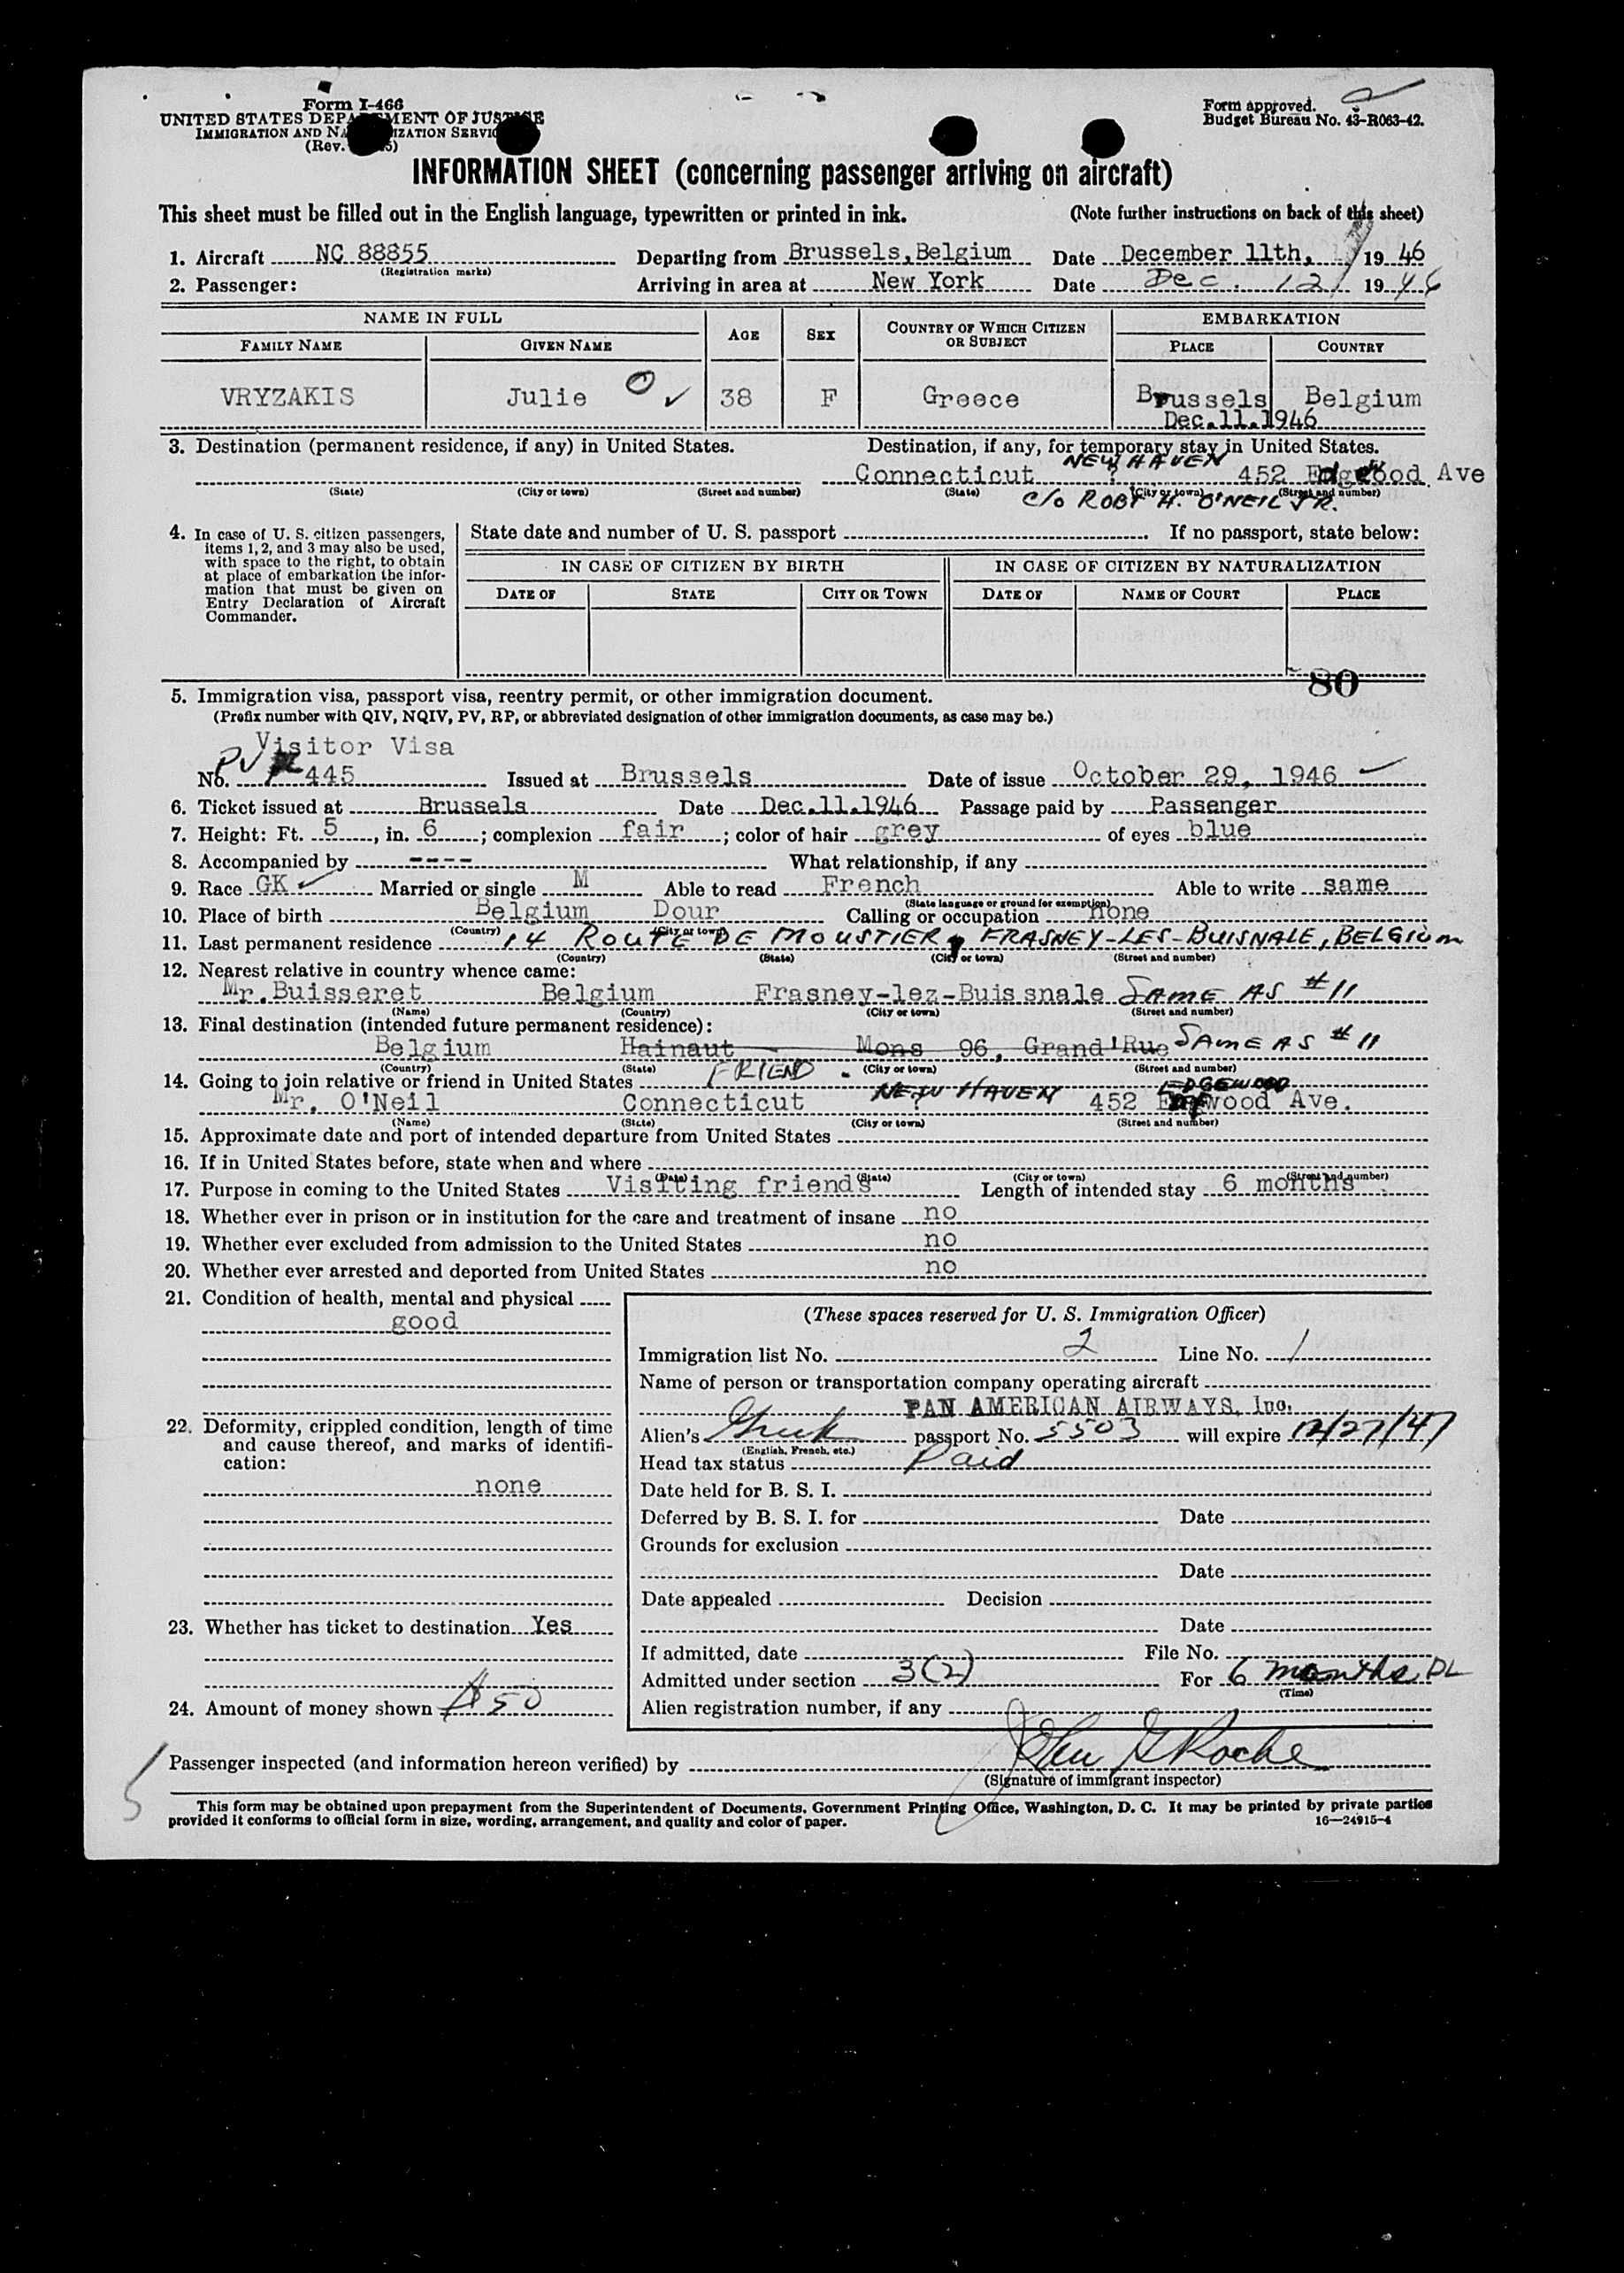 Form I-466
UNITED STATES DEPARTMENT OF JUSTICE
IMMIGRATION AND NATURALIZATION SERVICE
(Rev. 5)
Form approved.
Budget Bureau No. 43-R063-42.
INFORMATION SHEET (concerning passenger arriving on aircraft)
This sheet must be filled out in the English language, typewritten or printed in ink. (Note further instructions on back of this sheet)
1. Aircraft NC 88855 Departing from Brussels, Belgium Date December 11th, 19 46
(Registration marks)
2. Passenger: Arriving in area at New York Date Dec. 12 19 46
NAME IN FULL AGE SEX COUNTRY OF WHICH CITIZEN OR SUBJECT EMBARKATION
FAMILY NAME GIVEN NAME PLACE COUNTRY
VRYZAKIS Julie 38 F Greece Brussels Belgium
Dec.11.1946
3. Destination (permanent residence, if any) in United States. Destination, if any, for temporary stay in United States.
NEW HAVEN
Connecticut ? 452 Edgewood Ave
(State) (City or town) (Street and number) (State) (City or town) (Street and number)
C/O ROBT H. O'NEIL JR.
4. In case of U. S. citizen passengers, items 1, 2, and 3 may also be used, with space to the right, to obtain at place of embarkation the information that must be given on Entry Declaration of Aircraft Commander.
State date and number of U. S. passport If no passport, state below:
IN CASE OF CITIZEN BY BIRTH IN CASE OF CITIZEN BY NATURALIZATION
DATE OF STATE CITY OR TOWN DATE OF NAME OF COURT PLACE
80
5. Immigration visa, passport visa, reentry permit, or other immigration document.
(Prefix number with QIV, NQIV, PV, RP, or abbreviated designation of other immigration documents, as case may be.)
Visitor Visa
PV
No. 445 Issued at Brussels Date of issue October 29, 1946
6. Ticket issued at Brussels Date Dec.11.1946 Passage paid by Passenger
7. Height: Ft. 5, in. 6; complexion fair; color of hair grey of eyes blue
8. Accompanied by ---- What relationship, if any
9. Race GK Married or single M Able to read French Able to write same
(State language or ground for exemption)
10. Place of birth Belgium Dour Calling or occupation none
(Country) (City or town)
11. Last permanent residence 14 ROUTE DE MOUSTIER, FRASNEY-LES-BUISNALE, BELGIUM
(Country) (State) (City or town) (Street and number)
12. Nearest relative in country whence came:
Mr. Buisseret Belgium Frasney-lez-Buissnale SAME AS #11
(Name) (Country) (City or town) (Street and number)
13. Final destination (intended future permanent residence):
Belgium Hainaut Mons 96, Grand'Rue SAME AS #11
(Country) (State) (City or town) (Street and number)
14. Going to join relative or friend in United States FRIEND
NEW HAVEN EDGEWOOD
Mr. O'Neil Connecticut ? 452 wood Ave.
(Name) (State) (City or town) (Street and number)
15. Approximate date and port of intended departure from United States
16. If in United States before, state when and where
(Date) (State) (City or town) (Street and number)
17. Purpose in coming to the United States Visiting friends Length of intended stay 6 months
18. Whether ever in prison or in institution for the care and treatment of insane no
19. Whether ever excluded from admission to the United States no
20. Whether ever arrested and deported from United States no
21. Condition of health, mental and physical
good
22. Deformity, crippled condition, length of time and cause thereof, and marks of identification:
none
23. Whether has ticket to destination Yes
24. Amount of money shown $50
(These spaces reserved for U. S. Immigration Officer)
Immigration list No. 2 Line No. 1
Name of person or transportation company operating aircraft
PAN AMERICAN AIRWAYS, Inc.
Alien's Greek passport No. 5503 will expire 12/27/47
(English, French, etc.)
Head tax status Paid
Date held for B. S. I.
Deferred by B. S. I. for Date
Grounds for exclusion
Date
Date appealed Decision
Date
If admitted, date File No.
Admitted under section 3(2) For 6 months DL
(Time)
Alien registration number, if any
Passenger inspected (and information hereon verified) by John G Roche
(Signature of immigrant inspector)
This form may be obtained upon prepayment from the Superintendent of Documents, Government Printing Office, Washington, D. C. It may be printed by private parties
provided it conforms to official form in size, wording, arrangement, and quality and color of paper. 16—24915-4